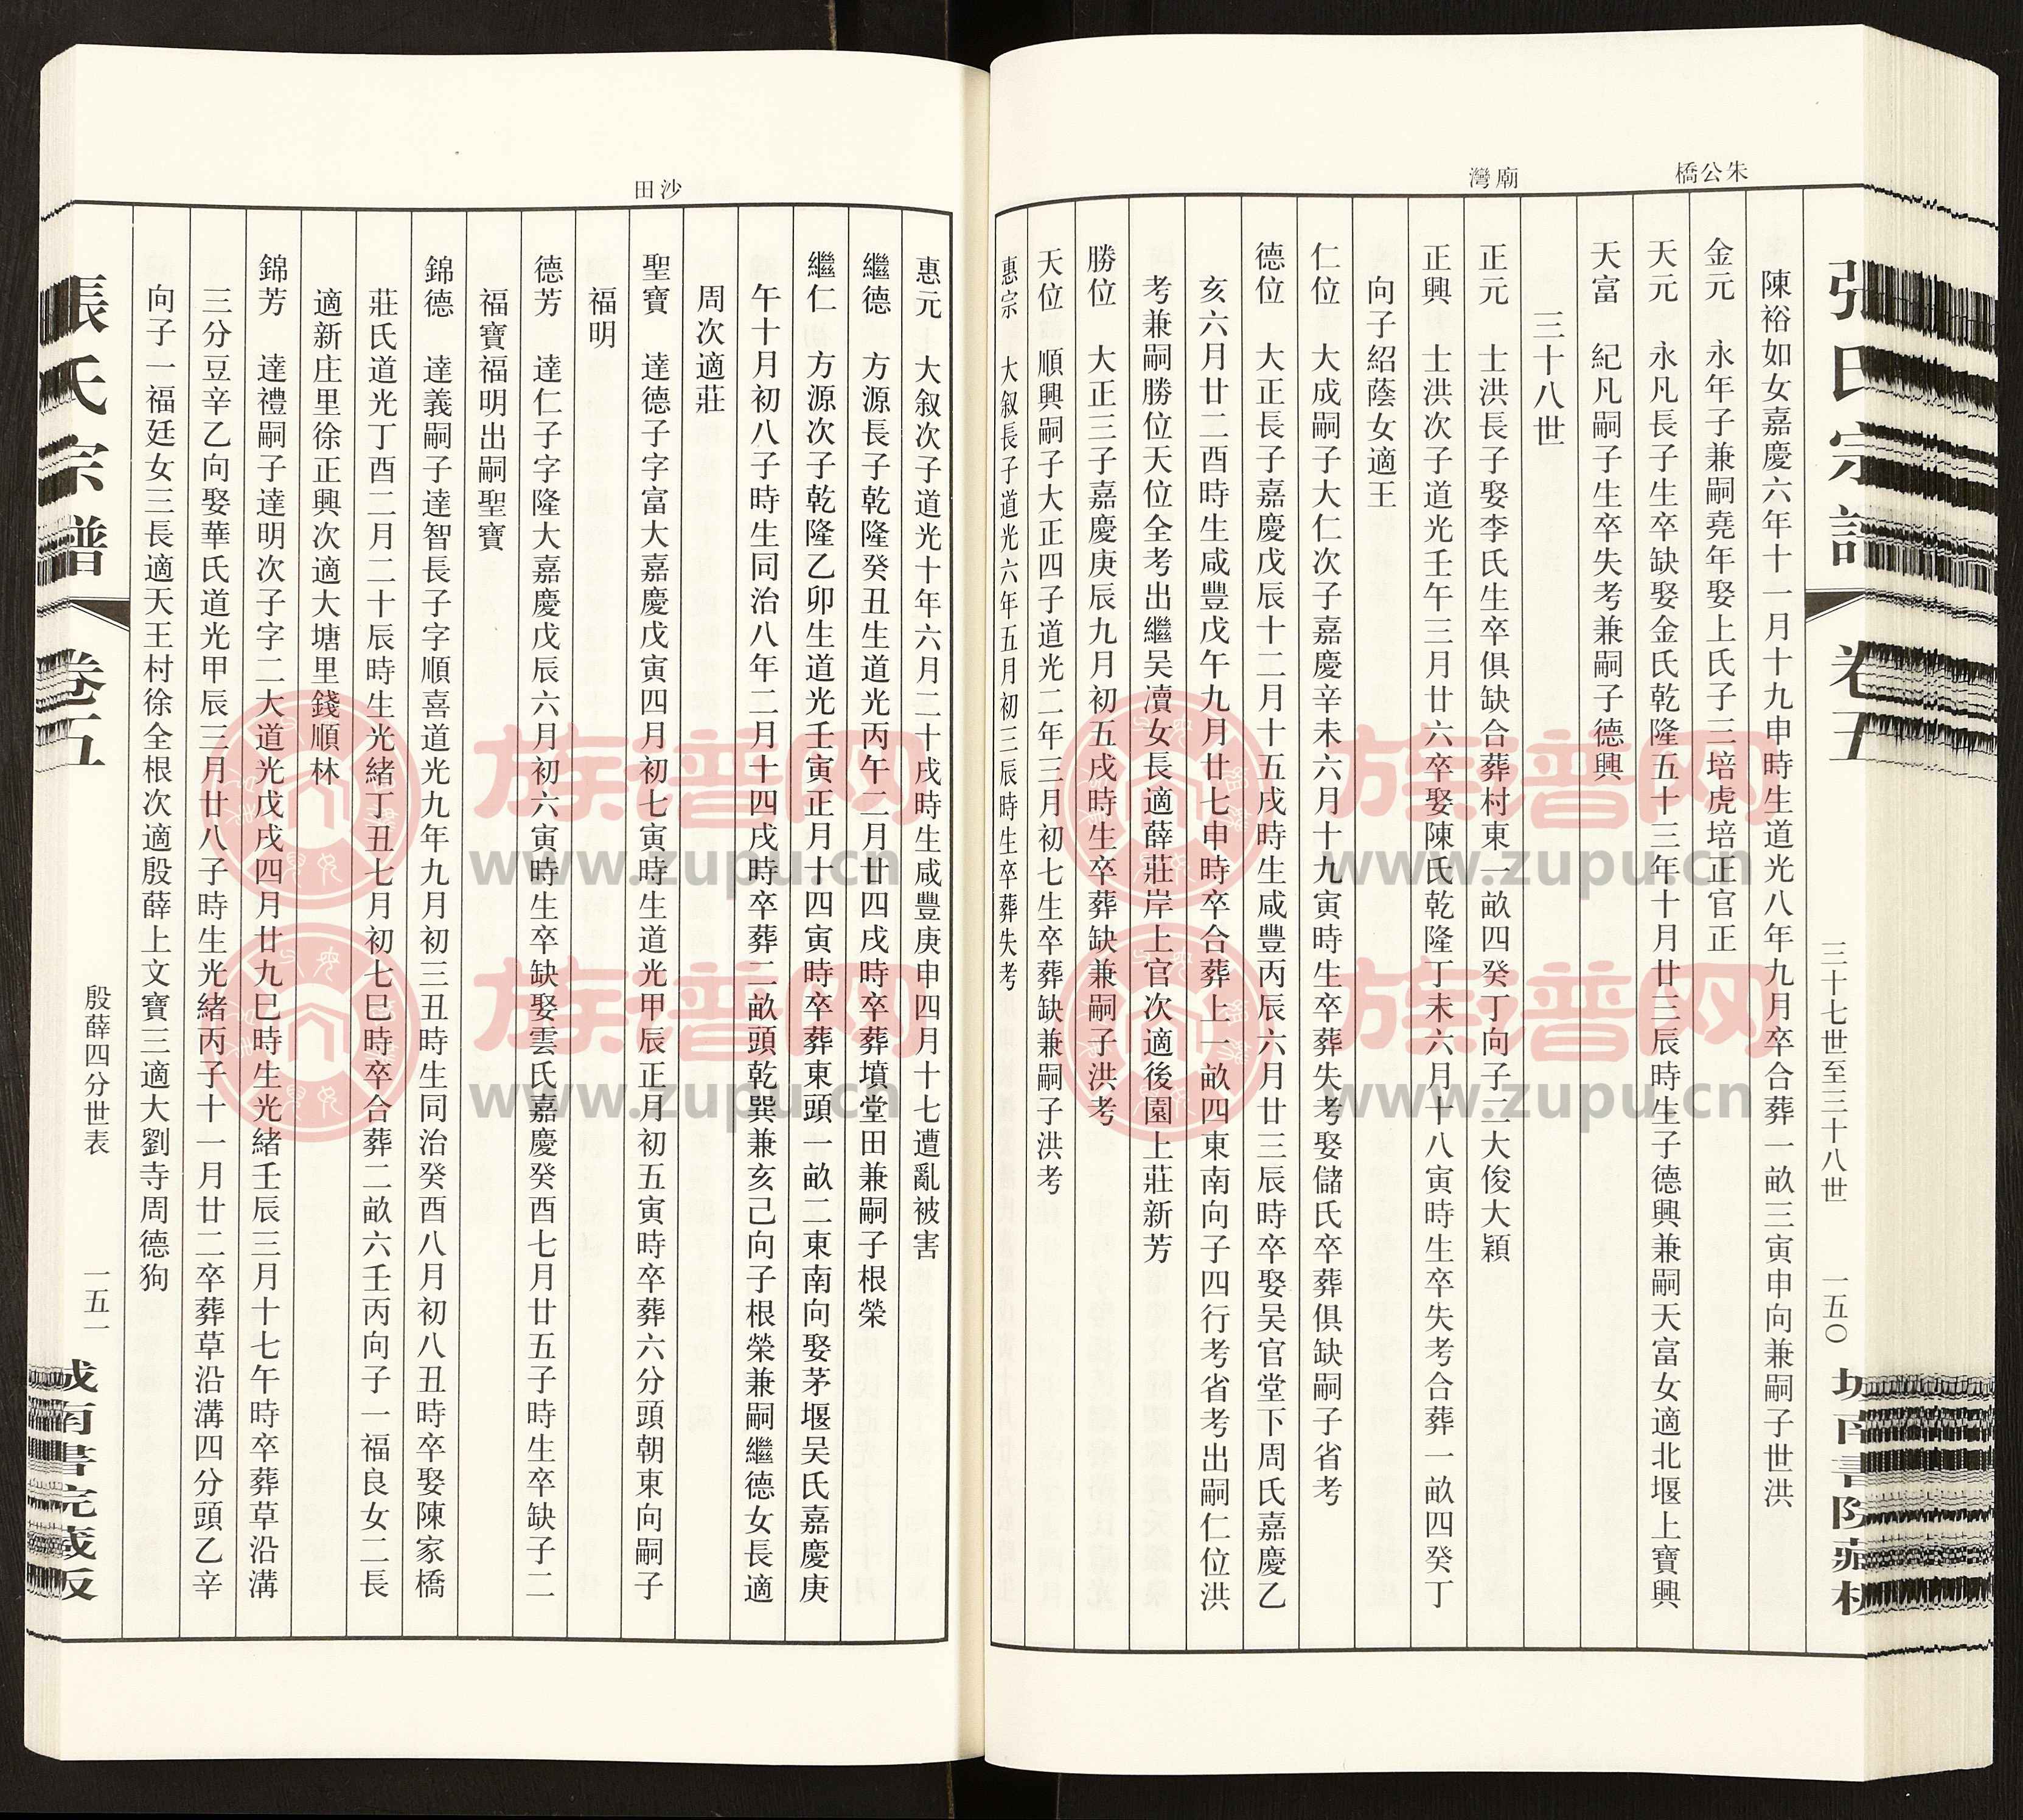 朱公橋
廟灣
張氏宗譜
卷五
三十七世至三十八世
一五〇
城南書院藏板
陳裕如女嘉慶六年十一月十九申時生道光八年九月卒合葬一畝三寅申向兼嗣子世洪
金元 永年子兼嗣堯年娶上氏子三培虎培正官正
天元 永凡長子生卒缺娶金氏乾隆五十三年十月廿三辰時生子德興兼嗣天富女適北堰上寶興
天富 紀凡嗣子生卒失考兼嗣子德興
三十八世
正元 士洪長子娶李氏生卒俱缺合葬村東一畝四癸丁向子二大俊大穎
正興 士洪次子道光壬午三月廿六卒娶陳氏乾隆丁未六月十八寅時生卒失考合葬一畝四癸丁
向子紹蔭女適王
仁位 大成嗣子大仁次子嘉慶辛未六月十九寅時生卒葬失考娶儲氏卒葬俱缺嗣子省考
德位 大正長子嘉慶戊辰十二月十五戌時生咸豐丙辰六月廿三辰時卒娶吴官堂下周氏嘉慶乙
亥六月廿二酉時生咸豐戊午九月廿七申時卒合葬上一畝四東南向子四行考省考出嗣仁位洪
考兼嗣勝位天位全考出繼吴瀆女長適薛莊岸上官次適後園上莊新芳
勝位 大正三子嘉慶庚辰九月初五戌時生卒葬缺兼嗣子洪考
天位 順興嗣子大正四子道光二年三月初七生卒葬缺兼嗣子洪考
惠宗 大叙長子道光六年五月初三辰時生卒葬失考
沙田
惠元 大叙次子道光十年六月二十戌時生咸豐庚申四月十七遭亂被害
繼德 方源長子乾隆癸丑生道光丙午二月廿四戌時卒葬墳堂田兼嗣子根榮
繼仁 方源次子乾隆乙卯生道光壬寅正月十四寅時卒葬東頭一畝二東南向娶茅堰吴氏嘉慶庚
午十月初八子時生同治八年二月十四戌時卒葬二畝頭乾巽兼亥己向子根榮兼嗣繼德女長適
周次適莊
聖寶 達德子字富大嘉慶戊寅四月初七寅時生道光甲辰正月初五寅時卒葬六分頭朝東向嗣子
福明
德芳 達仁子字隆大嘉慶戊辰六月初六寅時生卒缺娶雲氏嘉慶癸酉七月廿五子時生卒缺子二
福寶福明出嗣聖寶
錦德 達義嗣子達智長子字順喜道光九年九月初三丑時生同治癸酉八月初八丑時卒娶陳家橋
莊氏道光丁酉二月二十辰時生光緒丁丑七月初七巳時卒合葬二畝六壬丙向子一福良女二長
適新庄里徐正興次適大塘里錢順林
錦芳 達禮嗣子達明次子字二大道光戊戌四月廿九巳時生光緒壬辰三月十七午時卒葬草沿溝
三分豆辛乙向娶華氏道光甲辰三月廿八子時生光緒丙子十一月廿二卒葬草沿溝四分頭乙辛
向子一福廷女三長適天王村徐全根次適殷薛上文寶三適大劉寺周德狗
張氏宗譜
卷五
殷薛四分世表
一五一
城南書院藏板
族谱网
www.zupu.cn
族谱网
www.zupu.cn
族谱网
www.zupu.cn
族谱网
www.zupu.cn